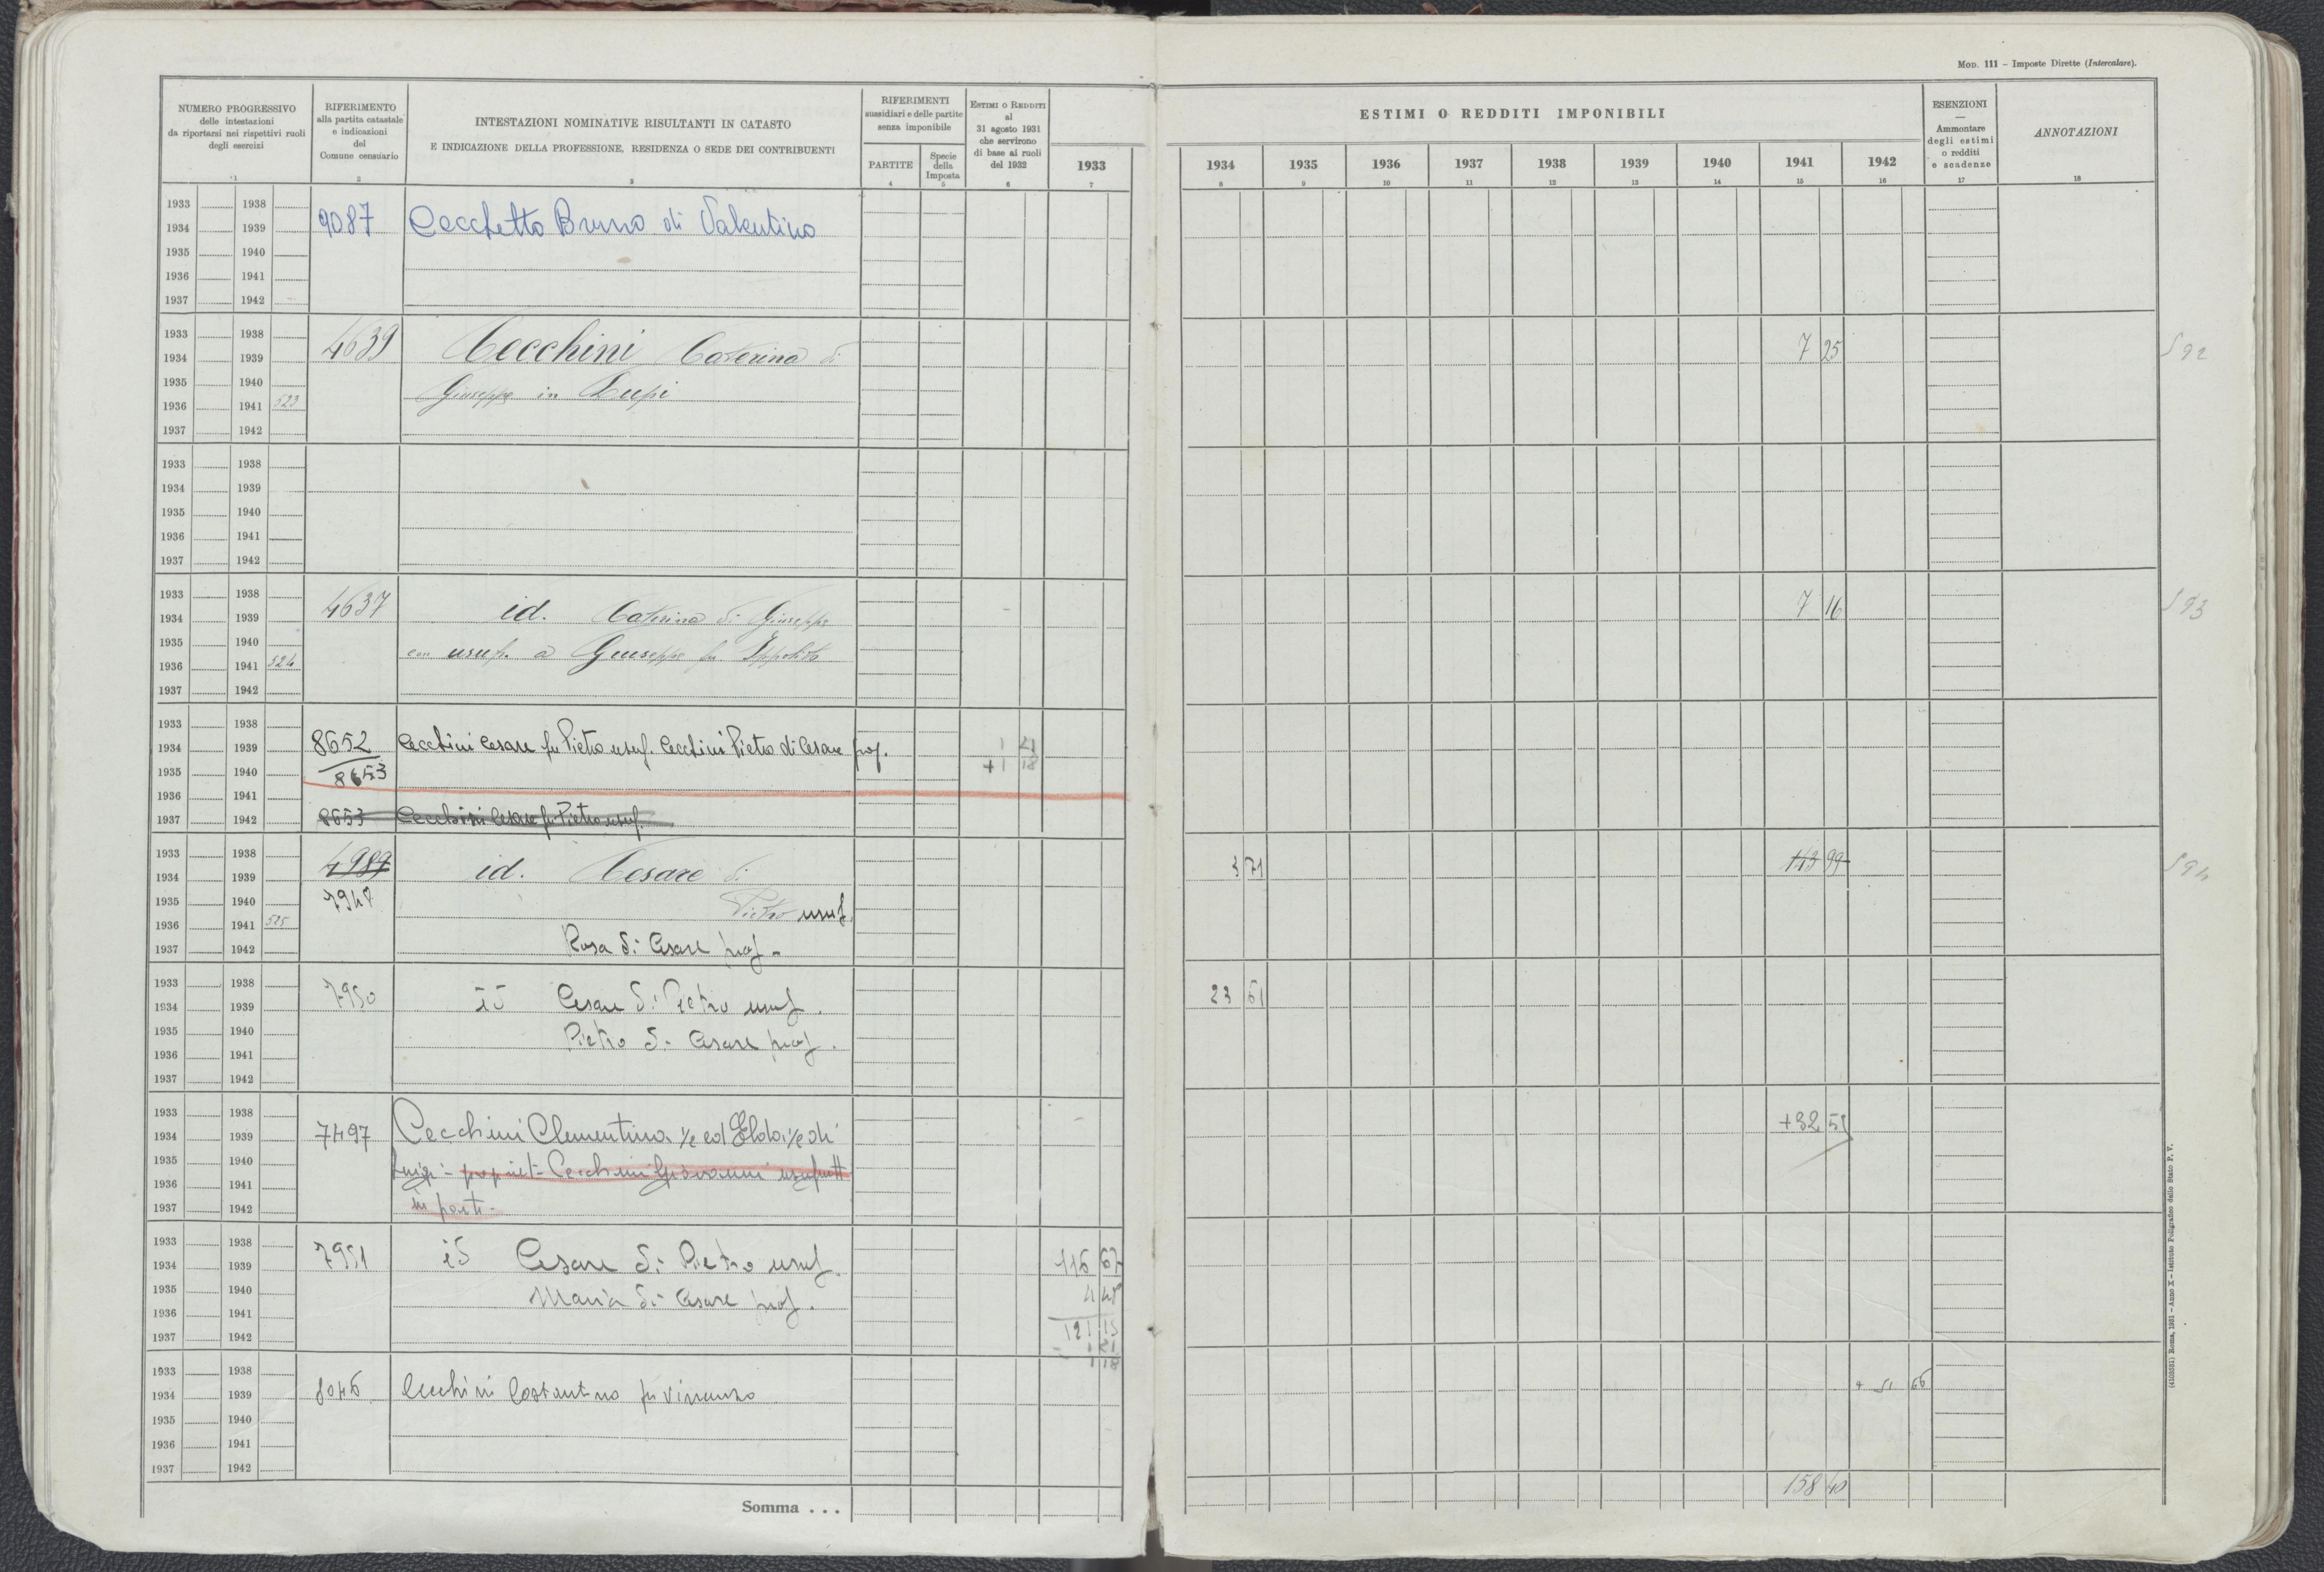 MOD. 111 – Imposte Dirette (Intercalare).
NUMERO PROGRESSIVO
delle intestazioni
da riportarsi nei rispettivi ruoli
degli esercizi
1
RIFERIMENTO
alla partita catastale
e indicazioni
del
Comune censuario
2
INTESTAZIONI NOMINATIVE RISULTANTI IN CATASTO
E INDICAZIONE DELLA PROFESSIONE, RESIDENZA O SEDE DEI CONTRIBUENTI
3
RIFERIMENTI
sussidiari e delle partite
senza imponibile
PARTITE
4
Specie
della
Imposta
5
ESTIMI O REDDITI
al
31 agosto 1931
che servirono
di base ai ruoli
del 1932
6
1933
7
ESTIMI O REDDITI IMPONIBILI
1934 1935 1936 1937 1938 1939 1940 1941 1942
8 9 10 11 12 13 14 15 16
ESENZIONI
—
Ammontare
degli estimi
o redditi
e scadenze
17
ANNOTAZIONI
18
1933 1938
1934 1939 9087 Cecchetto Bruno di Valentino
1935 1940
1936 1941
1937 1942
1933 1938
1934 1939 4639 Cecchini Caterina di 7 25 592
1935 1940 Giuseppe in Lupi
1936 1941 523
1937 1942
1933 1938
1934 1939
1935 1940
1936 1941
1937 1942
1933 1938
1934 1939 4637 id. Caterina di Giuseppe 7 16 593
1935 1940 con usuf. a Giuseppe fu Ippolito
1936 1941 524
1937 1942
1933 1938
1934 1939 8652 Cecchini Cesare fu Pietro usuf. Cecchini Pietro di Cesare prop. 1 21
1935 1940 8653 +1 18
1936 1941
1937 1942 8653 Cecchini Cesare fu Pietro usuf.
1933 1938
1934 1939 4987 id. Cesare di 3 71 143 99 594
1935 1940 7948 Pietro usuf.
1936 1941 525
1937 1942 Rosa di Cesare prop.
1933 1938
1934 1939 7950 id Cesare di Pietro usuf. 23 61
1935 1940 Pietro di Cesare prop.
1936 1941
1937 1942
1933 1938
1934 1939 7497 Cecchini Clementina 1/2 ed Elda 1/2 di +32 51
1935 1940 Luigi - propriet- Cecchini Giovanni usufrutt
1936 1941
1937 1942 in parte -
1933 1938
1934 1939 7951 id Cesare di Pietro usuf. 116 67
1935 1940 Maria di Cesare prop. 4 48
1936 1941
1937 1942 121 15
- 1 21
1 18
1933 1938
1934 1939 8046 Cecchini Costantino fu Vincenzo + 51 66
1935 1940
1936 1941
1937 1942
Somma . . . 158 40
(4103051) Roma, 1931 – Anno X – Istituto Poligrafico dello Stato P. V.